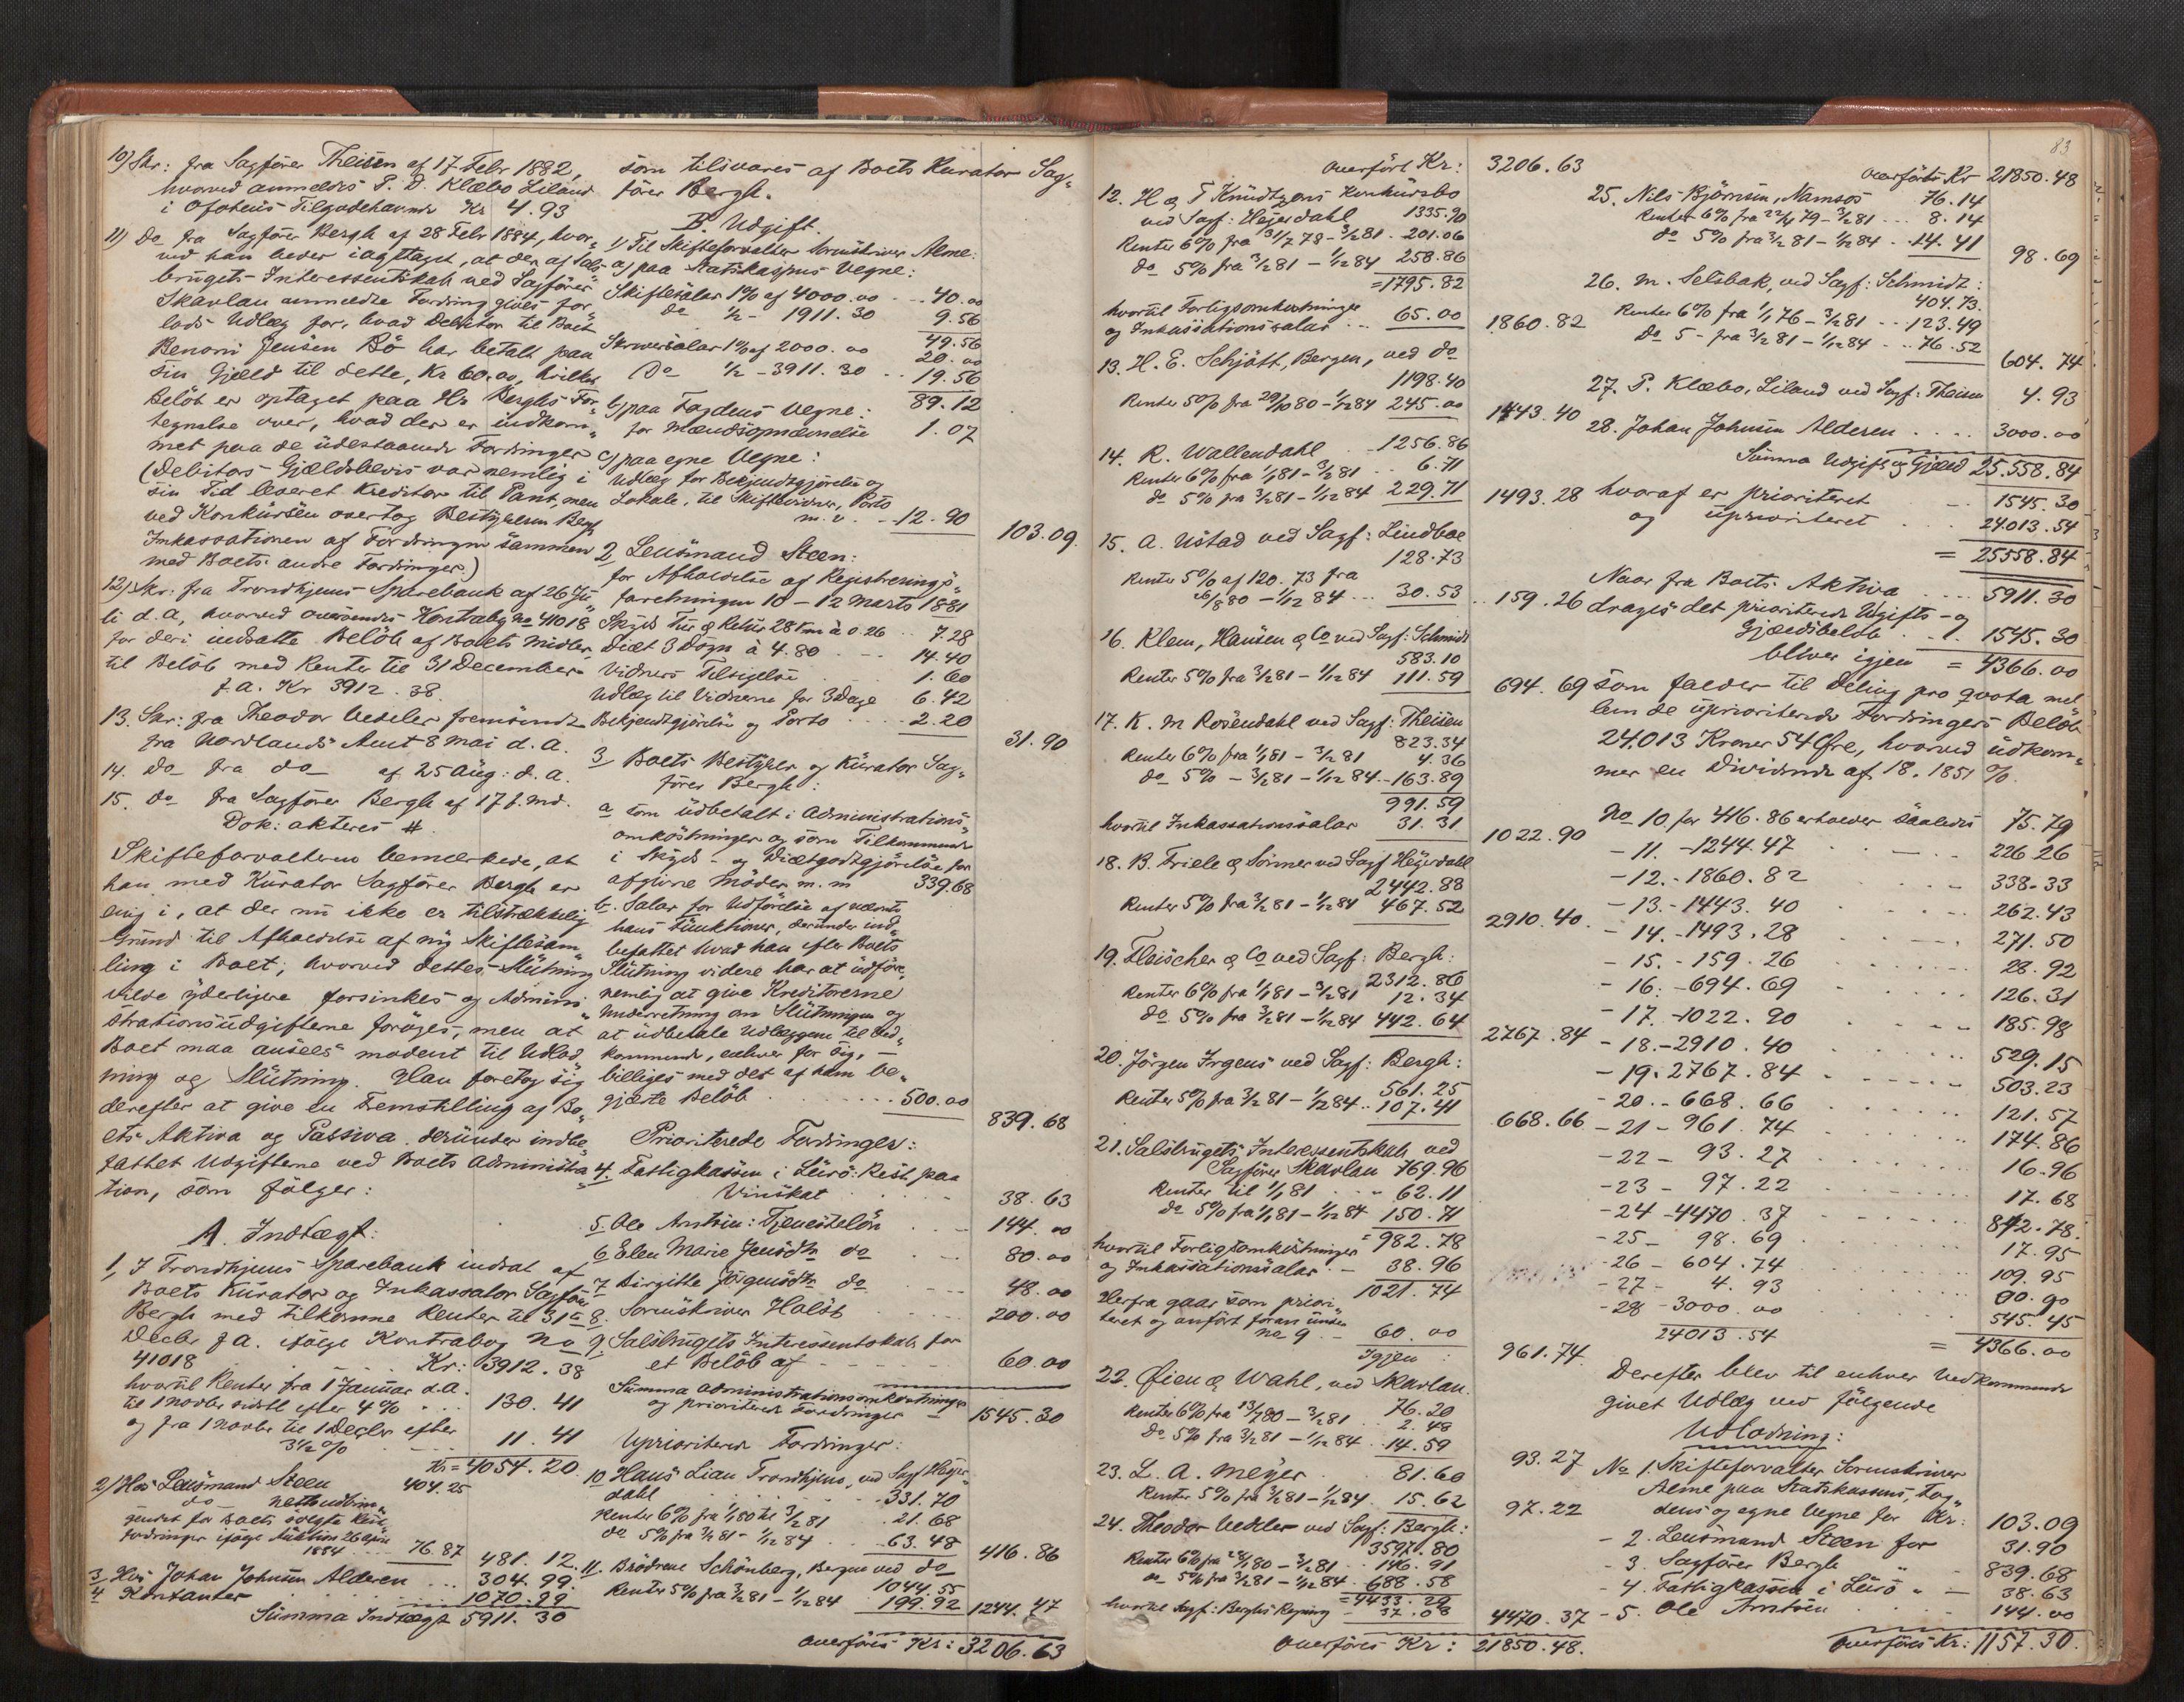 10) Skr: fra Sagfører Theisen af 17 Febr 1882,
hvorved anmeldes P. D. Klæbo Liland
i Ofotens Tilgodehavende Kr 4.93
11) Do fra Sagfører Bergh af 28 Febr 1884, hvor-
ved han beder iagttaget, at den af Sals-
brugets Interessentskab ved Sagfører
Skavlan anmeldte Fordring gives for-
lods Udlæg for, hvad Debitor til Boet
Benoni Jensen Bö har betalt paa
sin Gjæld til dette, Kr 60.00, hvilket
Beløb er optaget paa Hr Berghs For-
tegnelse over, hvad der er indkom-
met paa de udestaaende Fordringer
(Debitors Gjældsbevis var nemlig i
sin Tid leveret Kreditor til Pant, men
ved Konkursen overtog Bestyrelsen Bergh
Inkassationen af Fordringen sammen
med Boets andre Fordringer.)
12) Skr: fra Trondhjems Sparebank af 26 Ju
li d. A, hvorved oversendes Kontrabog No 41018
for deri indsatte Beløb af Boets Midler
til Beløb med Renter til 31 December
f. A. Kr 3912.38
13. Skr: fra Theodor Uedeler fremsendt
fra Nordlands Amt 8 Mai d. A.
14. Do fra do af 25 Aug: d. A.
15. Do fra Sagfører Bergh af 17 f. Md.
Dok: akteres #.
Skifteforvalteren bemærkede, at
han med Kurator Sagfører Bergh er
enig i, at der nu ikke er tilstrækkelig
Grund til Afholdelse af ny Skiftesam-
ling i Boet, hvorved dettes Slutning
vilde yderligere forsinkes og Admini-
strationsudgifterne forøges, men at
Boet maa ansees modent til Udlod-
ning og Slutning. Han foretog sig
derefter at give en Fremstilling af Bo-
ets Aktiva og Passiva derunder indbe-
fattet Udgifterne ved Boets Administra-
tion, som følger:
A. Indtægt:
1, I Trondhjems Sparebank indsat af
Boets Kurator og Inkassator Sagfører
Bergh med tilkomne Renter til 31te
Decbr f A. ifølge Kontrabog No
41018 Kr: 3912.38
hvortil Renter fra 1 Januar d.A.
til 1 Novbr sidstl efter 4% 130.41
og fra 1 Novbr til 1 Decbr efter
3½% 11.41
Kr = 4054.20
2/ Hos Lensmand Steen 404.25
do
fordringer ifølge Auktion 26 April
1884 76.87 481.12
3 Hos Johan Johnsen Alderen 304.99
4 Kontanter 1070.99
Summa Indtægt 5911.30
som tilsvares af Boets Kurator Sag-
fører Bergh.
B. Udgift.
1) Til Skifteforvalter Sorenskriver Alme:
a) paa Statskassens Vegne:
Skiftesalær 1% af 4000.00 40.00
do ½ - 1911.30 9.56
49.56
Skriversalær 1% af 2000.00 20.00
Do ½ - 3911.30 19.56
89.12
b) paa Fogdens Vegne:
for Mændsopnævnelse 1.07
c) paa egne Vegne:
Udlæg for Bekjendtgjørelse og
Lokale, til Skiftevidner, Porto
m.v. 12.90
103.09
2 Lensmand Steen:
for Afholdelse af Registrerings-
forretningen 10 - 12 Marts 1881
Skyds Tur & Retur 28 Km à 0.26 7.28
Diæt 3 Døgn à 4.80 14.40
Vidners Tilsigelse 1.60
Udlæg til Vidnerne for 3 Dage 6.42
Bekjendtgjørelse og Porto 2.20
31.90
3 Boets Bestyrer og Kurator Sag-
fører Bergh:
a som udbetalt i Administrations-
omkostninger og som Tilkommende
i Skyds- og Diætgodtgjørelse for
afgivne Møder m. m 339.68
b. Salær for Udførelse af nævnte
hans Funktioner, derunder ind-
befattet hvad han efter Boets
Slutning videre har at udføre,
nemlig at give Kreditorerne
Underretning om Slutningen og
at udbetale Udlæggene til Ved-
kommende, enhver for sig, —
billiges med det af ham be-
gjærte Beløb 500.00
839.68
Prioriterede Fordringer:
4. Fattigkassen i Lurö: Rest paa
Vinskat 38.63
5. Ole Amtsen: Tjenesteløn 144.00
6 Elen Marie Jensdtr do 80.00
7 Birgitte Jörgensdtr do 48.00
8. Sorenskriver Holst 200.00
9 Salsbrugets Interessentskab for
et Beløb af 60.00
Summa Administrationsomkostninger
og prioriterede Fordringer 1545.30
Uprioriterede Fordringer:
10 Hans Lian Trondhjem, ved Sagf Heyer-
dahl 331.70
Renter 6% fra 1/1 80 til 3/2 81 21.68
do 5% fra 3/2 81 - 1/12 84 63.48
416.86
11. Brødrene Schönberg, Bergen ved do
1044.55
Renter 5% fra 3/2 81 - 1/12 84 199.92 1244.47
overføres Kr: 3206.63
overført Kr: 3206.63
12. H & T Knudtzons Konkursbo
ved Sagf: Heyerdahl 1335.90
Renter 6% fra 31/7 78 - 3/2 81 201.06
do 5% fra 3/2 81 - 1/12 84 258.86
= 1795.82
hvortil Forligsomkostninger
og Inkassationssalær 65.00 1860.82
13. H. E. Schjött, Bergen, ved do
1198.40
Renter 5% fra 29/10 80 - 1/12 84 245.00
1443.40
14. R. Wallendahl 1256.86
Renter 6% fra 1/1 81 - 3/2 81 6.71
do 5% fra 3/2 81 - 1/12 84 229.71 1493.28
15. A. Ustad ved Sagf: Lindboe
128.73
Renter 5% af 120.73 fra
26/8 80 - 1/12 84 30.53 159.26
16. Klem, Hansen & Co ved Sagf: Schmidt
583.10
Renter 5% fra 3/2 81 - 1/12 84 111.59
694.69
17. K. M Rosendahl ved Sagf: Theisen
823.34
Renter 6% fra 1/1 81 - 3/2 81 4.36
do 5% - 3/2 81 - 1/12 84 163.89
991.59
hvortil Inkassationssalær 31.31
1022.90
18. B. Friele & Sønner ved Sagf Heyerdahl
2442.88
Renter 5% fra 3/2 81 - 1/12 84 467.52
2910.40
19. Fleischer & Co ved Sagf: Bergh:
2312.86
Renter 6% fra 1/1 81 - 3/2 81 12.34
do 5% fra 3/2 81 - 1/12 84 442.64
2767.84
20. Jörgen Irgens ved Sagf: Bergh:
561.25
Renter 5% fra 3/2 81 - 1/12 84 107.41
668.66
21. Salsbrugets Interessentskab ved
Sagfører Skavlan 769.96
Renter til 1/1 81 62.11
do 5% fra 1/1 81 - 1/12 84 150.71
= 982.78
hvortil Forligsomkostninger
og Inkassationssalær 38.96
1021.74
Herfra gaar som priori-
teret og anført foran under
No 9 60.00
Igjen: 961.74
22. Øien & Wahl, ved Skavlan.
76.20
Renter 6% fra 13/7 80 - 3/2 81 2.48
Do 5% fra 3/2 81 - 1/12 84 14.59
93.27
23. L. A. Meyer 81.60
Renter 5% fra 3/2 81 - 1/12 84 15.62
97.22
24. Theodor Uedeler ved Sagf: Bergh:
3597.80
Renter 6% fra 80 - 3/2 81 146.91
do 5% fra 3/2 81 - 1/12 84 688.58
= 4433.29
hvortil Sagf: Berghs Regning 37.08
4470.37
overføres Kr: 21850.48.
83
overført Kr 21850.48
25. Nils Björnsen, Namsos 76.14
Renter 6% fra 79 - 3/2 81 8.14
do 5% fra 3/2 81 - 1/12 84 14.41
98.69
26. M. Selsbak, ved Sagf: Schmidt:
404.73
Renter 6% fra 1/1 76 - 3/2 81 123.49
Do 5 - fra 3/2 81 - 1/12 84 76.52
604.74
27. P. Klæbo, Liland ved Sagf: Theisen 4.93
28. Johan Johnsen Alderen 3000.00
Summa Udgift og Gjæld 25.558.84
hvoraf er prioriteret 1545.30
og uprioriteret 24013.54
= 25558.84
Naar fra Boets Aktiva 5911.30
drages det prioriterede Udgifts- og
Gjældsbeløb 1545.30
bliver igjen = 4366.00
som falder til Deling pro qvota mel
lem de uprioriterede Fordringers Beløb
24.013 Kroner 54 Øre, hvorved udkom-
mer en Dividende af 18.1851 %.
No 10 for 416.86 erholder saaledes 75.79
- 11. - 1244.47 226.26
- 12. - 1860.82 338.33
- 13. - 1443.40 262.43
- 14. - 1493.28 271.50
- 15. - 159.26 28.92
- 16. - 694.69 126.31
- 17. - 1022.90 185.98
- 18. - 2910.40 529.15
- 19. 2767.84 503.23
- 20. - 668.66 121.57
- 21 - 961.74 174.86
- 22 - 93.27 16.96
- 23 - 97.22 17.68
- 24 - 4470.37 812.78
- 25 - 98.69 17.95
- 26 - 604.74 109.95
- 27 - 4.93 00.90
- 28 - 3000.00 545.45
24013.54 = 4366.00
Derefter blev til enhver Vedkommende
givet Udlæg ved følgende
Udlodning:
No 1. Skifteforvalter Sorenskriver
Alme paa Statskassens, Fog-
dens og egne Vegne for Kr: 103.09
- 2. Lensmand Steen for 31.90
- 3. Sagfører Bergh 839.68
- 4. Fattigkassen i Lurö 38.63
- 5. Ole Amtsen 144.00
overføres Kr: 1157.30.